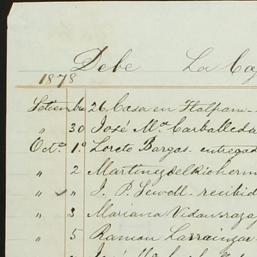 Debe La Ca
1878
Setiembe 26 Casa en Tlalpam
" 30 José Ma. Carballeda
Octe. 1o Loreto Bargas entregad
" 2 Martinez del Rio herm
" " J. P. Sewell recibid
" 3 Mariana Vidaurrazag
" 5 Ramon Larrainzar